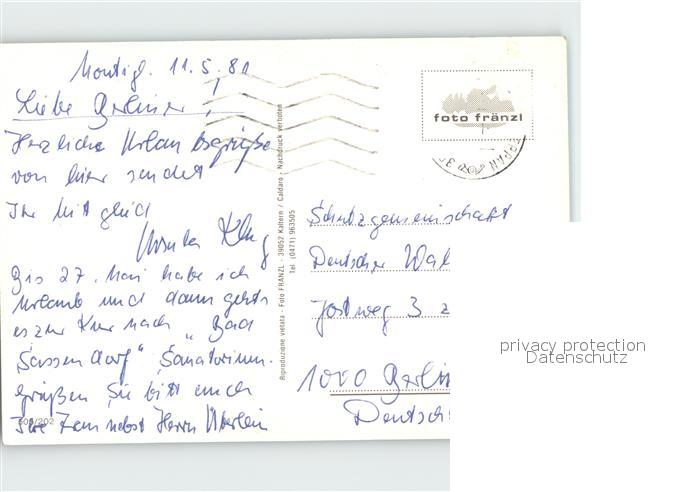 Montigl. 11.5.81
Liebe Berliner!
Herzliche Urlaubsgrüße
von hier sendet
Ihr Mitglied
Ursula
Bis 27. Mai habe ich
Urlaub und dann gehts
es zur Kur nach "Bad
Sassendorf" Sanatorium.
Grüßen Sie bitte auch
Ihre nebst Herrn
609/202
Riproduzione vietata - Foto FRÄNZL - 39052 Kaltern / Caldaro - Nachdruck verboten
Tel (0471) 963505
foto fränzl
Schutzgemeinschaft
Deutscher Wal
Jostweg 3
1000 Berlin
Deutsch
privacy protection
Datenschutz